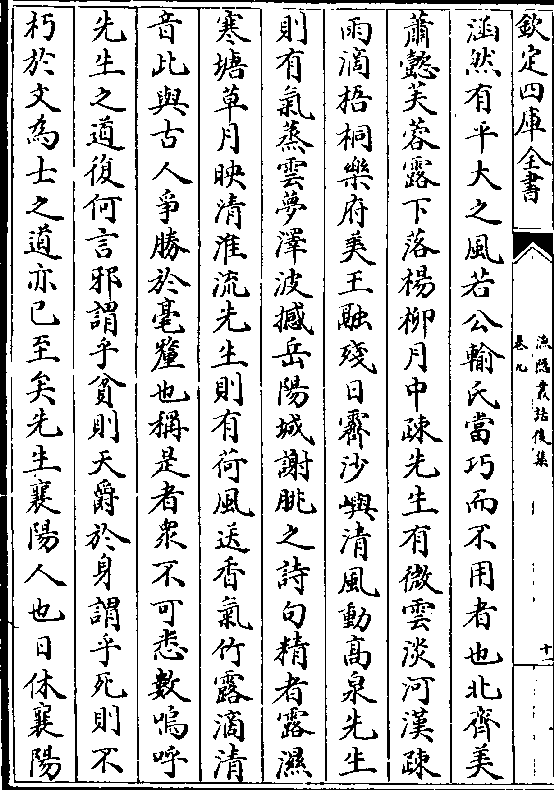 欽定四庫全書
漁隱叢話後集
卷九
十一
涵然有平大之風若公輸氏當巧而不用者也北齊美
蕭慤芙蓉露下落楊柳月中疎先生有微雲淡河漢疎
雨滴梧桐樂府美王融殘日霽沙嶼清風動高泉先生
則有氣蒸雲夢澤波撼岳陽城謝朓之詩句精者露濕
寒塘草月映清淮流先生則有荷風送香氣竹露滴清
音此與古人爭勝於毫釐也稱是者衆不可悉數嗚呼
先生之道復何言邪謂乎貧則天爵於身謂乎死則不
朽於文為士之道亦已至矣先生襄陽人也日休襄陽